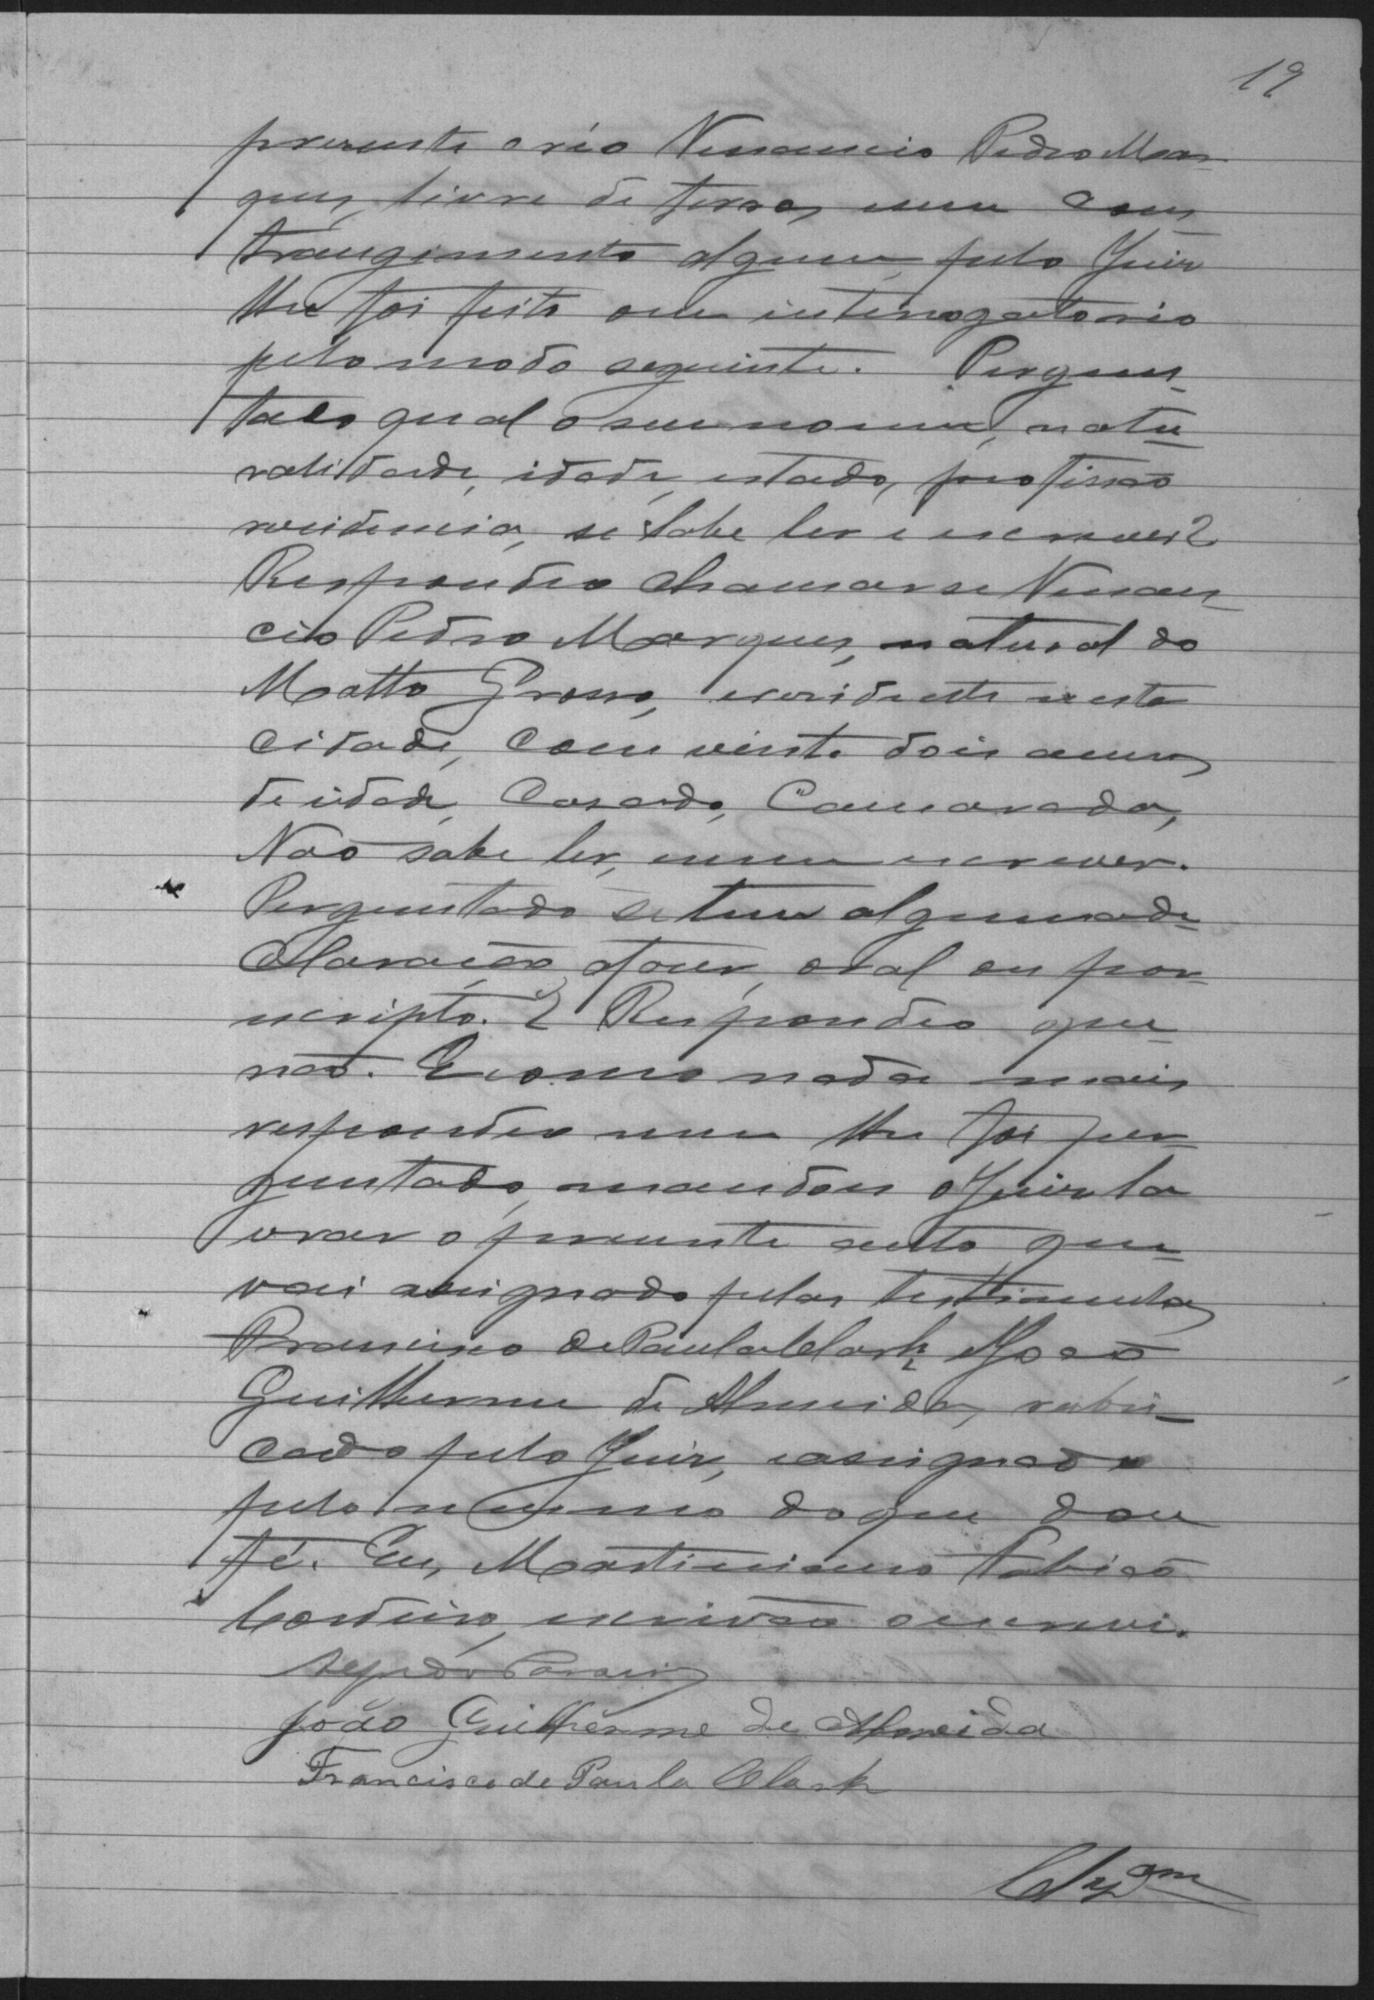 19
presente o réo Venancio Pedro Mar-
ques, livre de ferros, sem cons-
trangimento algum, pelo Juiz
lhe foi feito o seu interrogatorio
pelo modo seguinte. Pergun-
tado qual o seu nome, natu-
ralidade, idade, estado, profissão
residencia, se sabe ler e escrever?
Respondeo chamar-se Venan-
cio Pedro Marques, natural do
Matto Grosso, residente nesta
cidade, com vinte dois annos
de idade, Casado, Camarada,
Não sabe ler, nem escrever.
Perguntado se tem alguma de-
claração a fazer, oral ou por
escripto.? Respondeo que
não. E como nada mais
respondeo nem lhe foi per-
guntado, mandou o Juiz la
vrar o presente auto que
vai assignado pelas testimunhas
Francisco de Paula Clark, e João
Guilherme de Almeida, rubri-
cado pelo Juiz, e assignado
pelo mesmo do que dou
fé. Eu, Martiniano Fabião
Cordeiro, escrivão o escrevi.
João Guilherme de Almeida
Francisco de Paula Clark